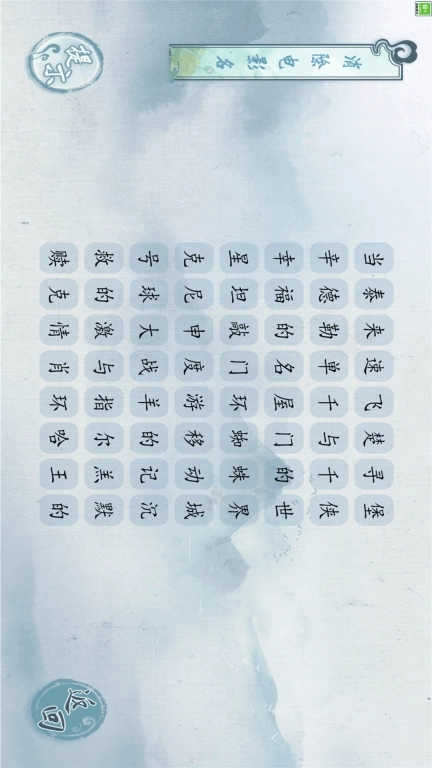 消除电影名
当泰来速飞楚寻堡
辛德勒单千与千侠
幸福的名屋门的世
星坦敲门环蜘蛛界
克尼申度游移动城
号球大战羊的记沉
救的激与指尔羔默
赎克情肖环哈王的
提示
返回